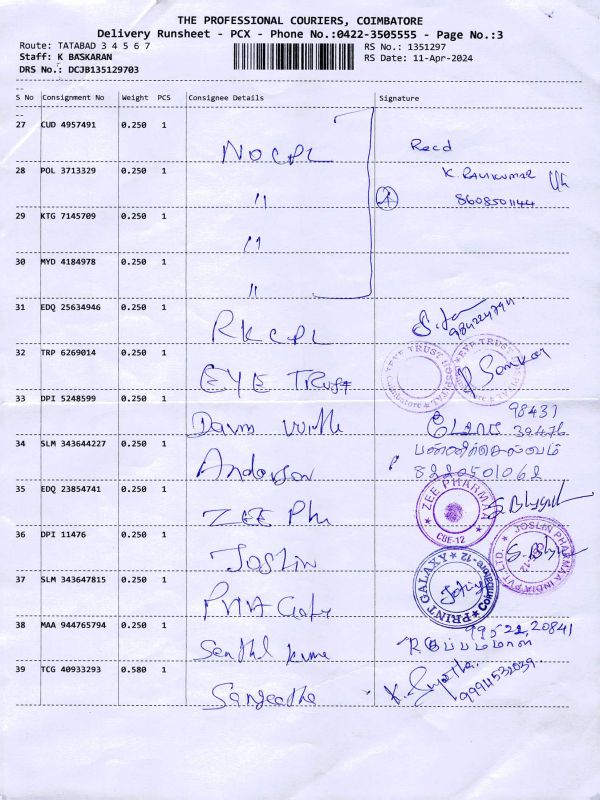 THE PROFESSIONAL COURIERS, COIMBATORE
Delivery Runsheet - PCX - Phone No.:0422-3505555 - Page No.:3
Route: TATABAD 3 4 5 6 7
RS No.: 1351297
Staff: K BASKARAN
RS Date: 11-Apr-2024
DRS No.: DCJB135129703
S No Consignment No Weight PCS Consignee Details Signature
27 CUD 4957491 0.250 1 NOCPL Recd
28 POL 3713329 0.250 1 " K. RAVIKUMAR
8608501144
29 KTG 7145709 0.250 1 "
30 MYD 4184978 0.250 1 "
31 EDQ 25634946 0.250 1 RKCPL
32 TRP 6269014 0.250 1 EYE TRUST
EYE TRUST
Coimbatore
33 DPI 5248599 0.250 1 98431
39476
34 SLM 343644227 0.250 1 Anderson பன்னீர்செல்வம்
8220501062
35 EDQ 23854741 0.250 1 ZEE Ph
ZEE PHARMA
CBE-12
36 DPI 11476 0.250 1 Joslin
JOSLIN PHARMA INDIA PVT. LTD.
37 SLM 343647815 0.250 1
PRINT GALAXY
Coimbatore-12
38 MAA 944765794 0.250 1 Senthil Kumar 99522,20841
39 TCG 40933293 0.580 1 Sangeetha
9994532039